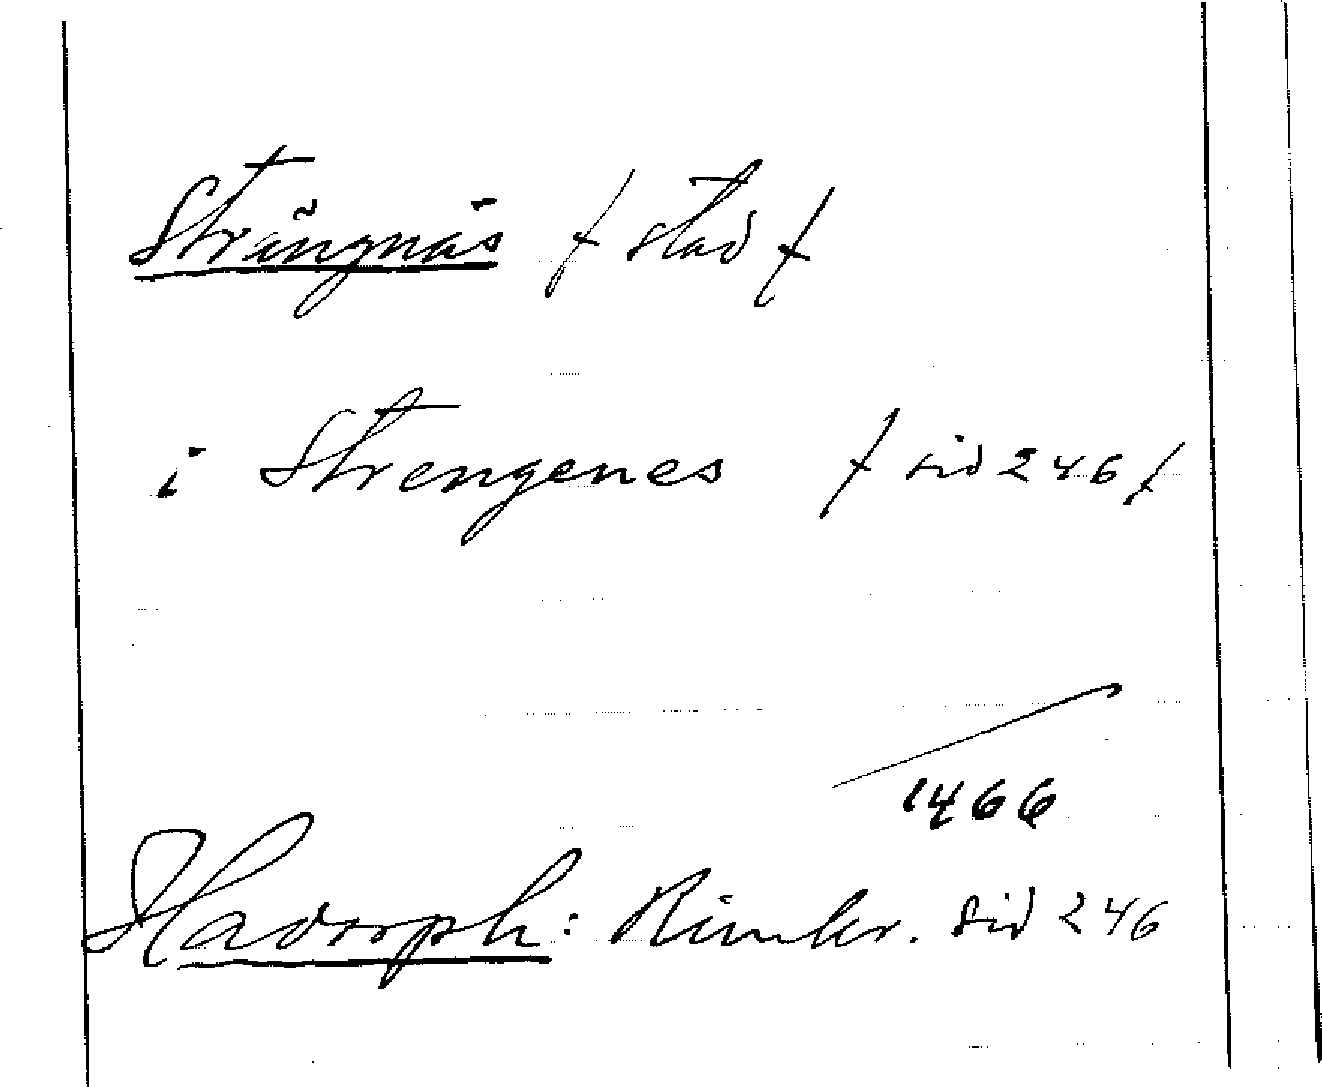 Strängnäs / stad /
i Strengenes / sid 246 /
1466
Hadorph: Rimkr. sid 246